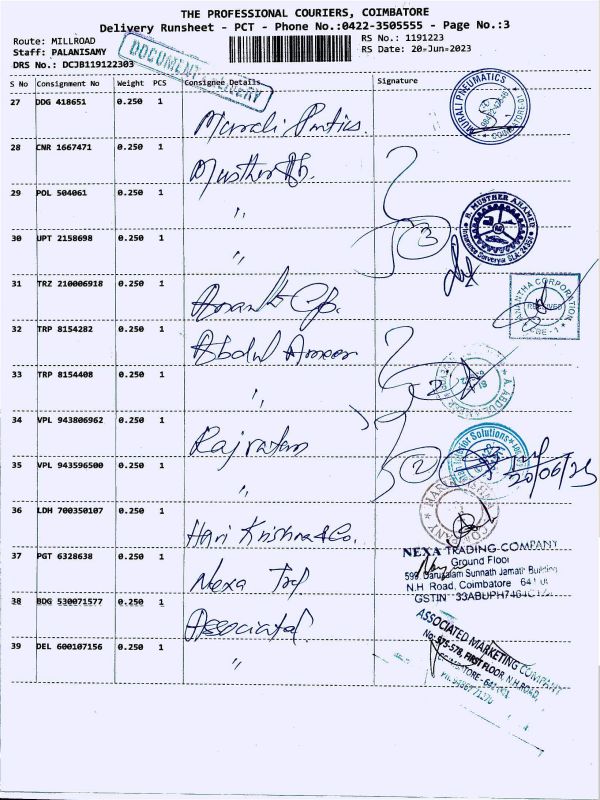 THE PROFESSIONAL COURIERS, COIMBATORE
Delivery Runsheet - PCT - Phone No.:0422-3505555 - Page No.:3
Route: MILLROAD
RS No.: 1191223
Staff: PALANISAMY
RS Date: 20-Jun-2023
DRS No.: DCJB119122303
DOCUMENT DELIVERY
S No Consignment No Weight PCS Consignee Details Signature
27 DDG 418651 0.250 1 Murali
MURALI PNEUMATICS
28 CNR 1667471 0.250 1 Musther
29 POL 504061 0.250 1 "
3
B. MUSTHER AHAMED
30 UPT 2158698 0.250 1 "
31 TRZ 210006918 0.250 1 Ananth
ANANTHA CORPORATION
RECEIVED
CBE - 1
32 TRP 8154282 0.250 1 Abdul Ameer
33 TRP 8154408 0.250 1 "
2
34 VPL 943806962 0.250 1 Rajratan
Solutions
35 VPL 943596500 0.250 1 "
2
20/06/23
36 LDH 700350107 0.250 1 Hari Krishna & Co.
37 PGT 6328638 0.250 1 Nexa Trd
NEXA TRADING COMPANY
Ground Floor
599, Darusalam Sunnath Jamath Building
N.H Road, Coimbatore
GSTIN
38 BDG 530071577 0.250 1 Associated
39 DEL 600107156 0.250 1 "
ASSOCIATED MARKETING COMPANY
No: 575-578, FIRST FLOOR, N.H.ROAD,